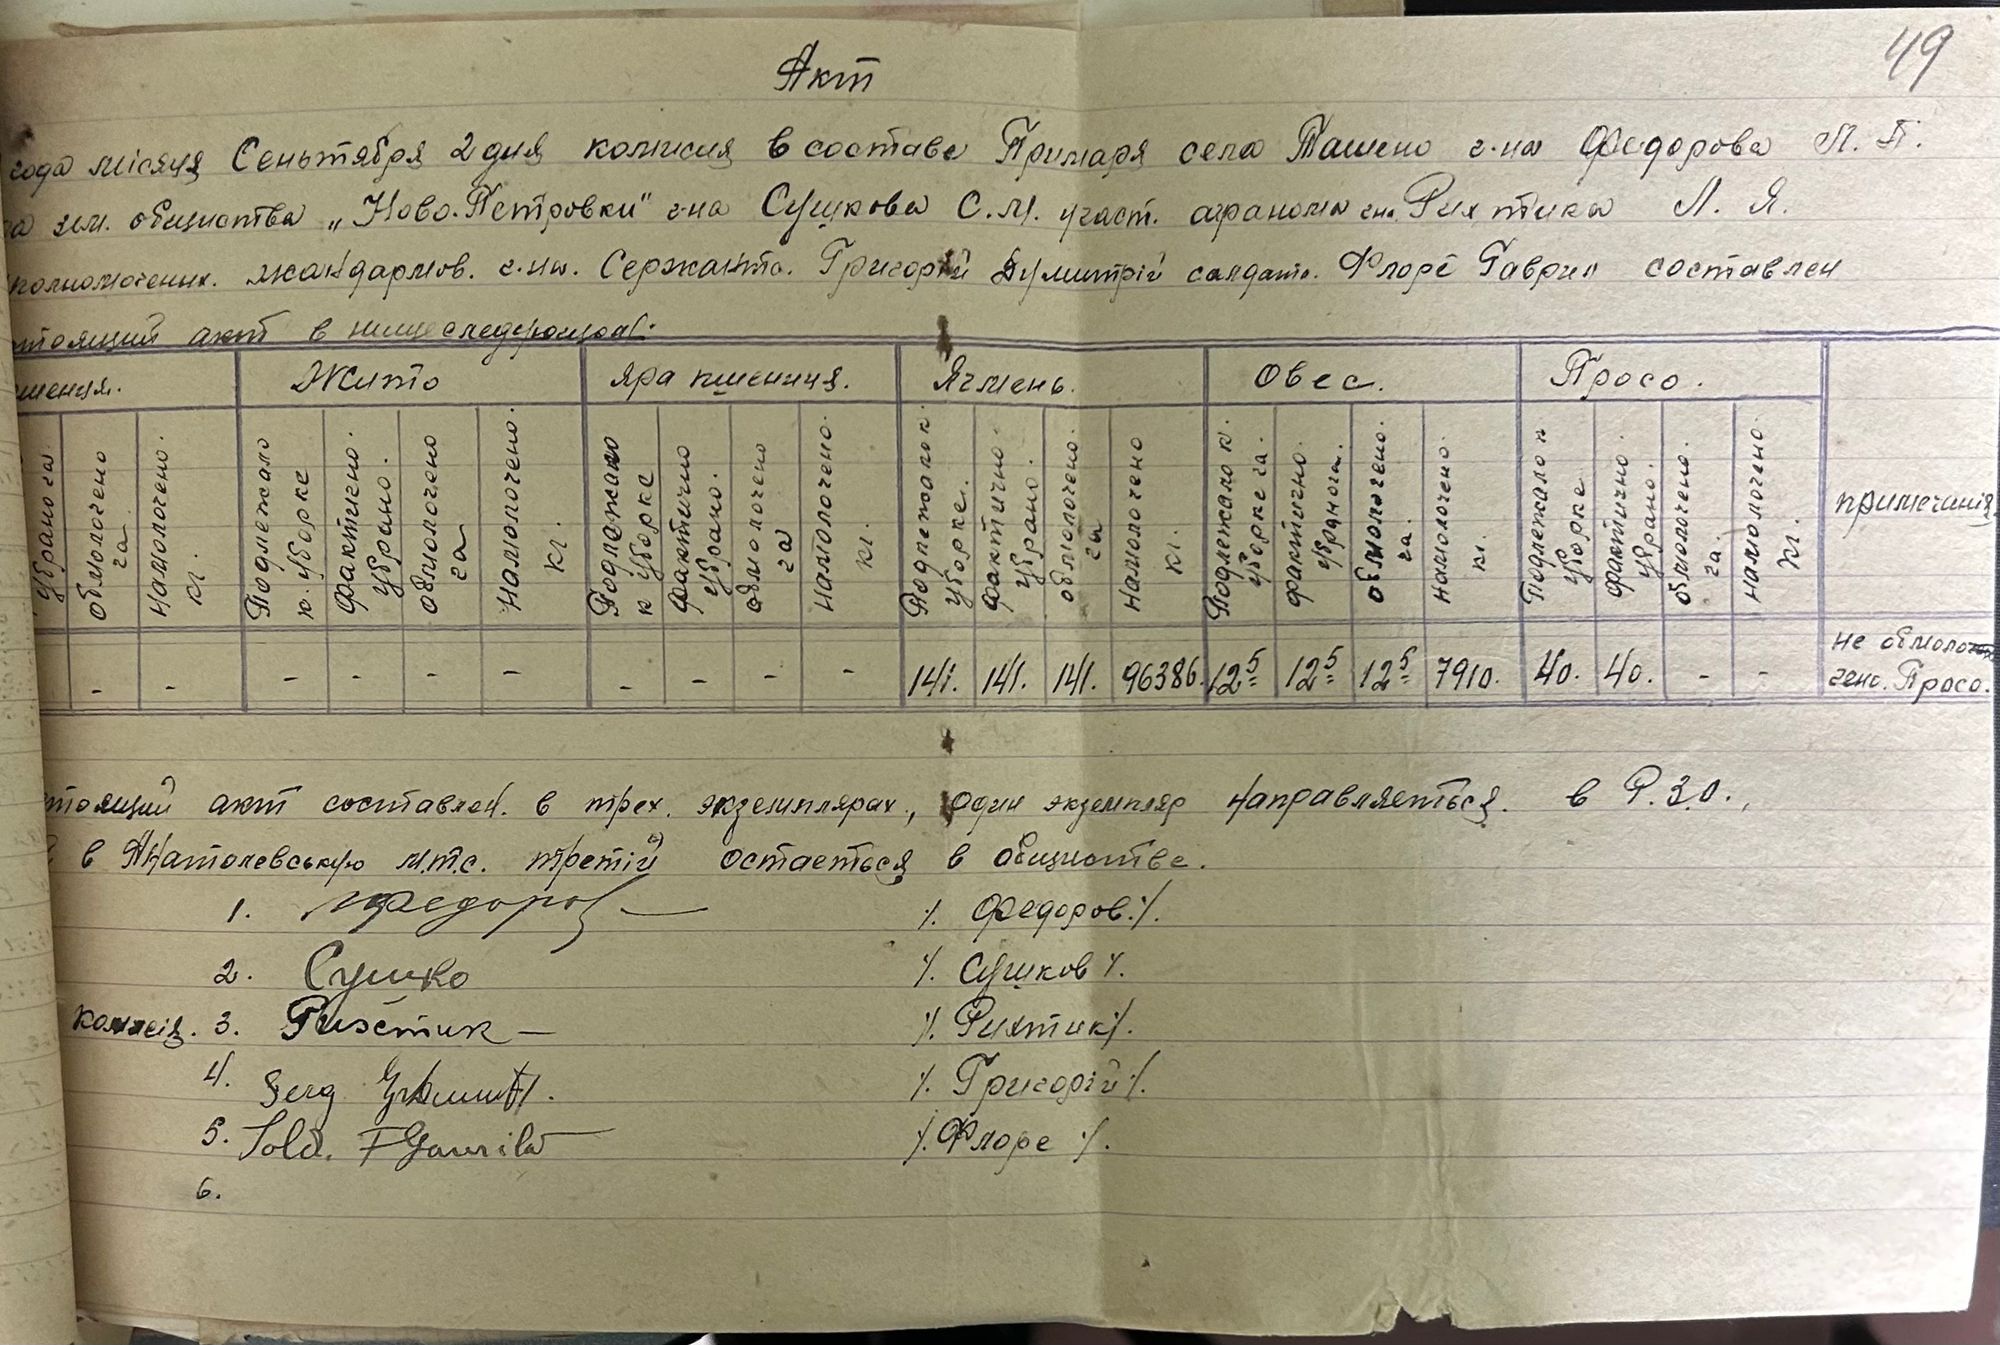 49
Акт
года місяця Сеньтября 2 дня комисия в составе Примаря села Ташено г-на Федорова М. П.
зем. общиства „Ново-Петровки" г-на Сушкова С. М. участ. агранома гна. Рихтика Л. Я.
жандармов. г.на. Сержанта. Григорій Думитрій салдата. Флоре Гаврил составлен
акт в нищеследующом:
Жито Яра пшениця. Ячмень. Овес. Просо.
убрано га обмолочено га. намолочено. кг. Подлежало к. уборке фактично. убрано. обмолочено га намолочено. кг. Подлежало к уборке фактично убрано. обмолочено га намолочено. кг. Подлежало к. уборке. фактично убрано. обмолочено. га намолочено кг. Подлежало к. уборке га. фактично. убрано га. обмолочено. га. намолочено кг. Подлежало к уборке фактично. убрано. обмолочено. га. намолочено. кг. примечания
- - - - - - - - - - 141. 141. 141. 96386. 12⁵ 12⁵ 12⁵ 7910. 40. 40. - - не обмоло
чено. Просо.
акт составлен. в трех. экземплярах., один экземпляр направляеться. в Р.З.О.,
в Анатолевською м.т.с. третій остаеться в общистве.
1. МФедоров ⁒. Федоров ⁒.
2. Сушко ⁒. Сушков ⁒.
комисія. 3. Рихтик — ⁒. Рихтик ⁒.
4. Serg ⁒. Григорій ⁒.
5. Sold. F Gavrila ⁒. Флоре ⁒.
6.